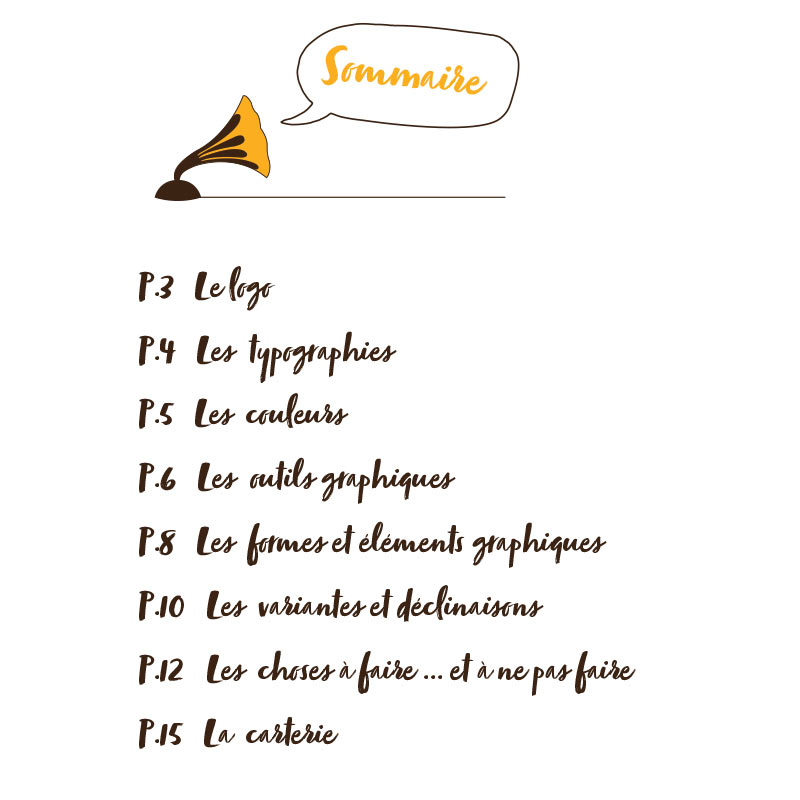 Sommaire
P.3 Le logo
P.4 Les typographies
P.5 Les couleurs
P.6 Les outils graphiques
P.8 Les formes et éléments graphiques
P.10 Les variantes et déclinaisons
P.12 Les choses à faire ... et à ne pas faire
P.15 La carterie